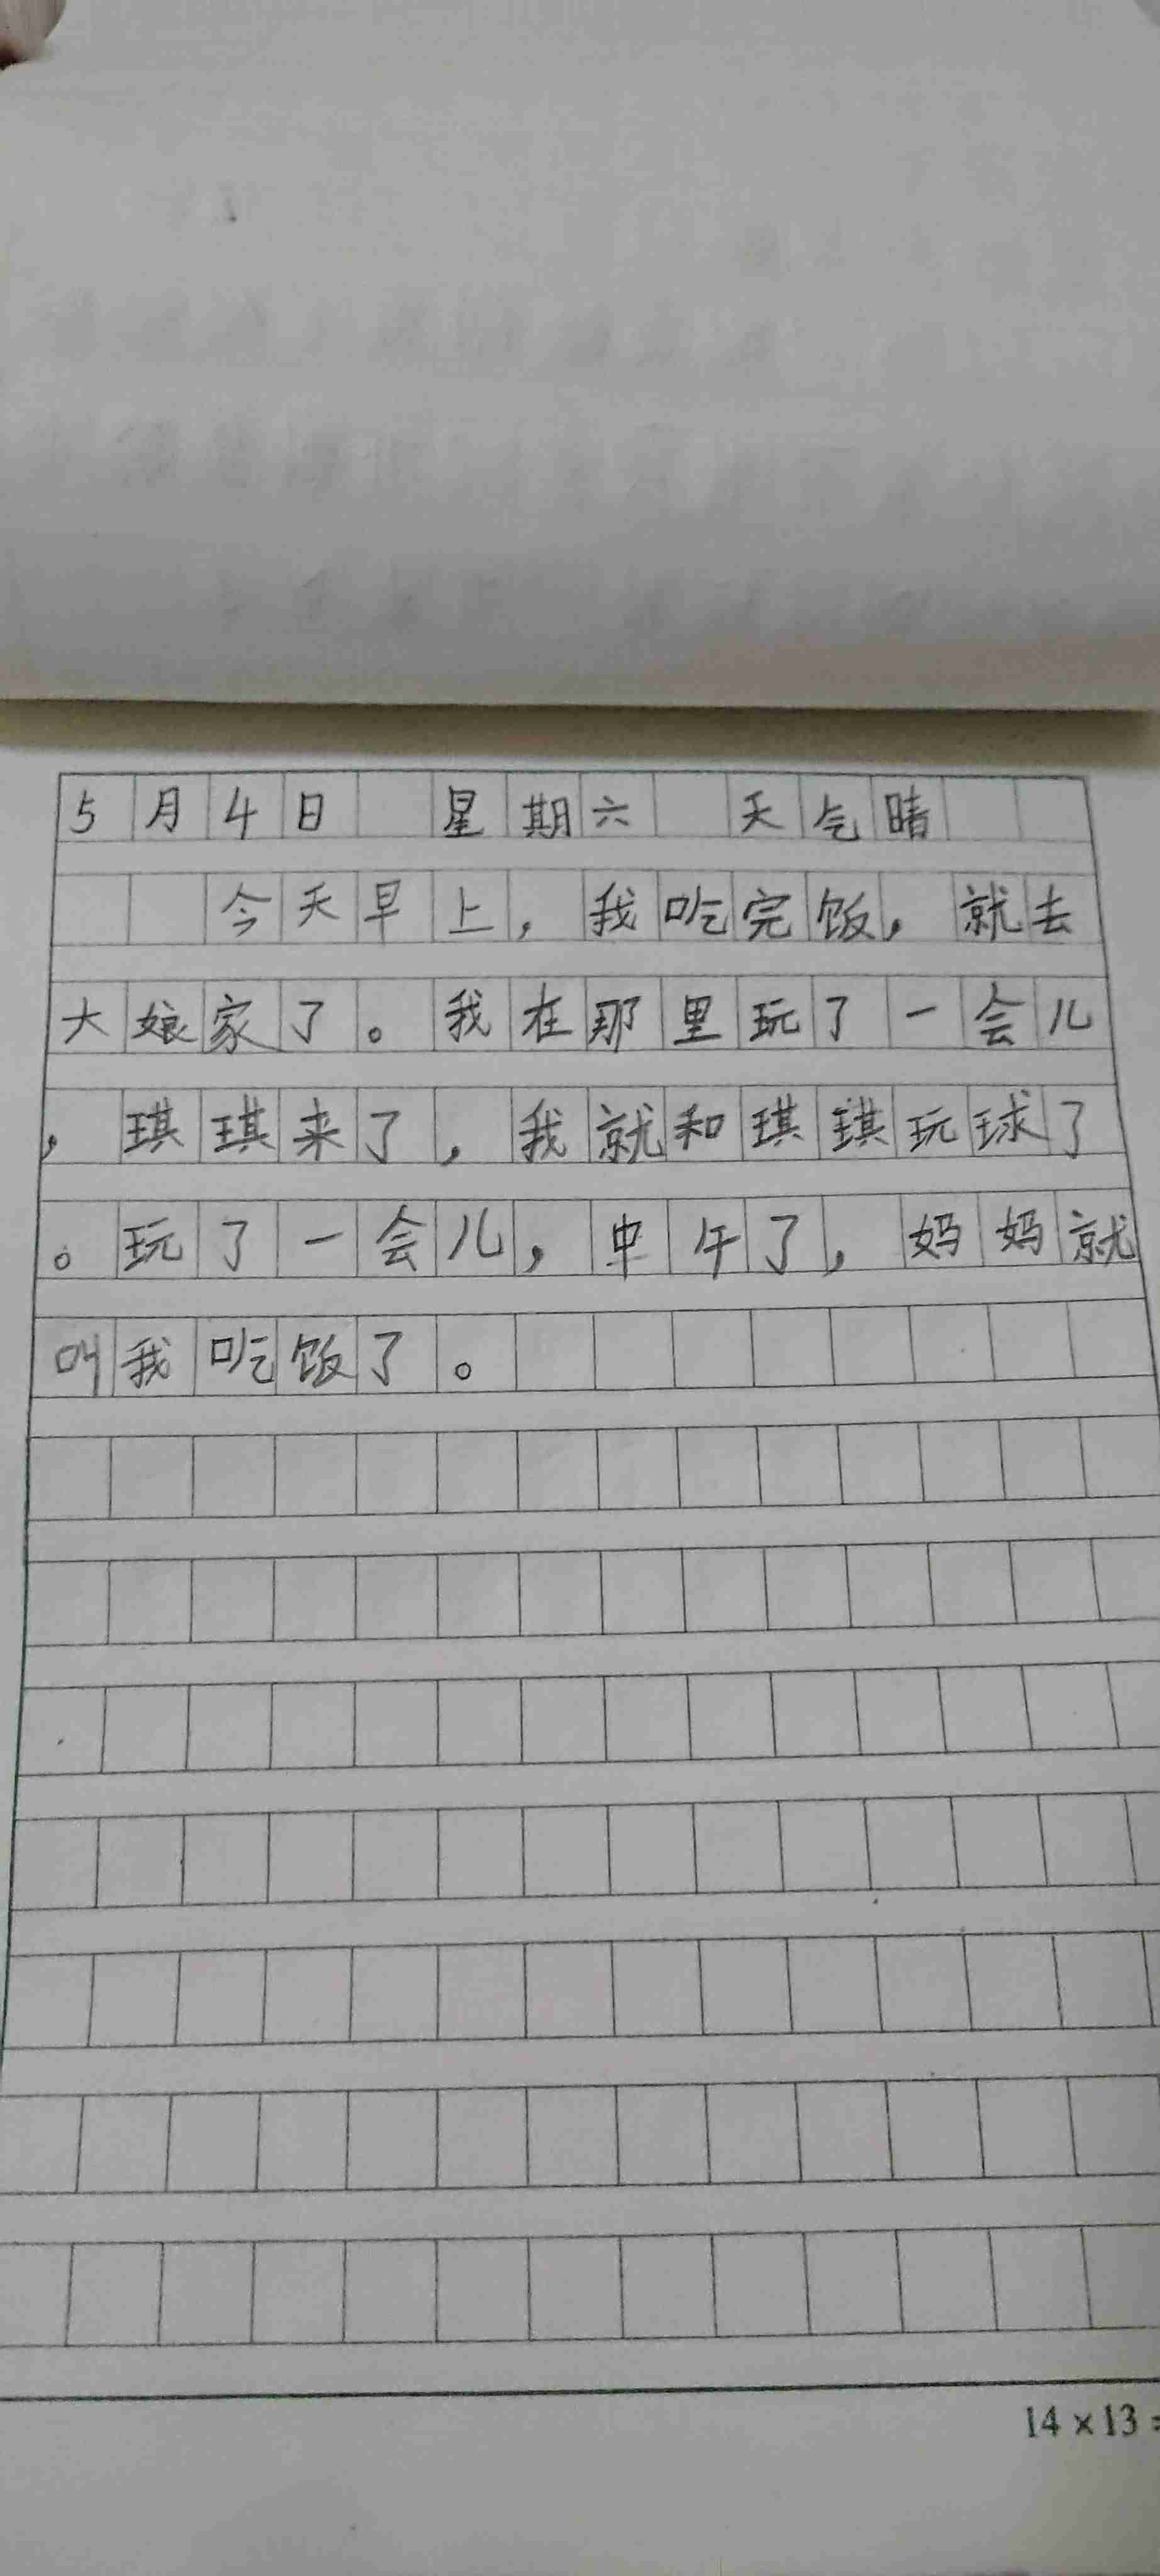 5月4日 星期六 天气晴
今天早上，我吃完饭，就去
大娘家了。我在那里玩了一会儿
，琪琪来了，我就和琪琪玩球了
。玩了一会儿，中午了，妈妈就
叫我吃饭了。
14×13=